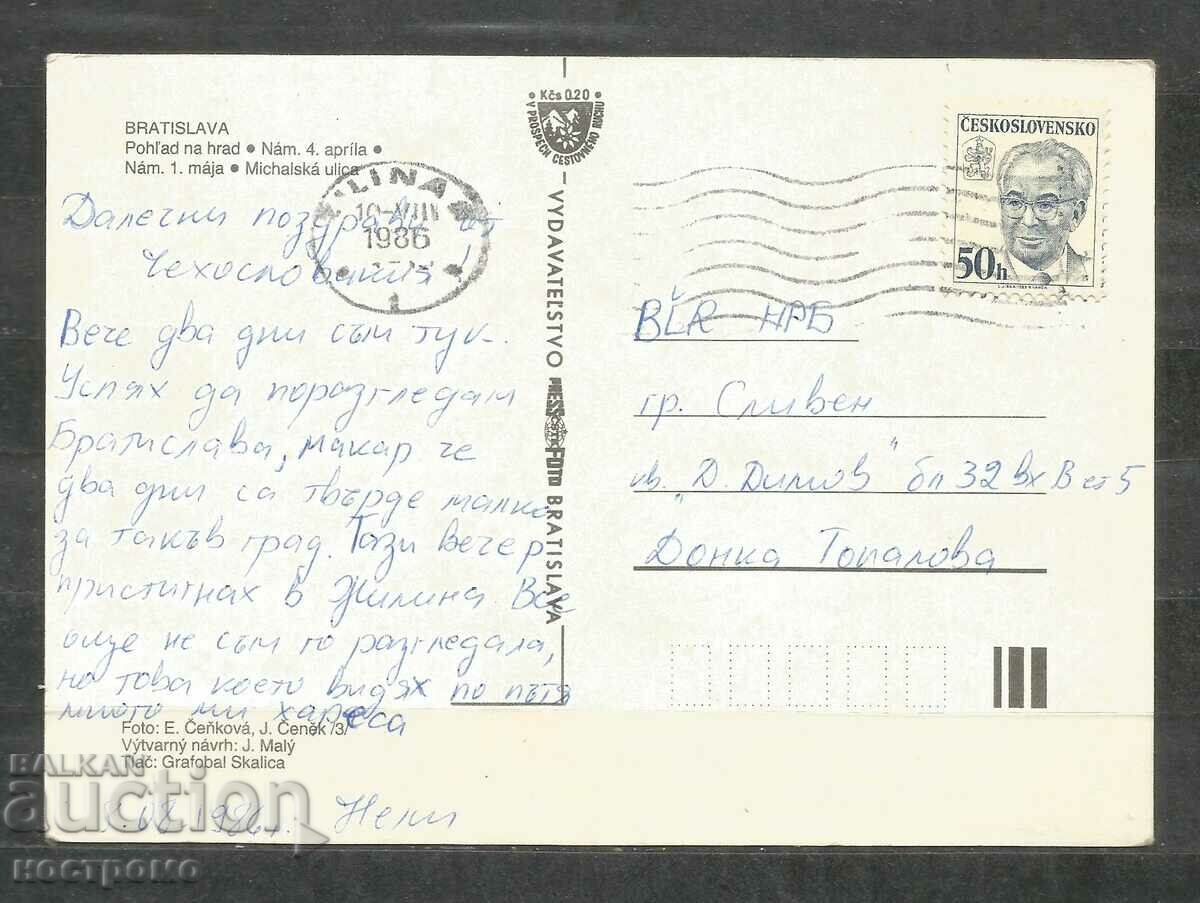 BRATISLAVA
Pohľad na hrad • Nám. 4. apríla •
Nám. 1. mája • Michalská ulica
Далечни поздрави от
Чехословакия!
Вече два дни съм тук.
Успях да поразгледам
Братислава, макар че
два дни са твърде малко
за такъв град. Тази вечер
пристигнах в Жилина Все
още не съм го разгледала,
но това което видях по пътя
много ми хареса
Foto: E. Čeňková, J. Čeněk /3/
Výtvarný návrh: J. Malý
Tlač: Grafobal Skalica
08.1986г. Нели
ILINA
10.VIII
1986
1
Kčs 0.20
V PROSPECH CESTOVNÉHO RUCHU
VYDAVATEĽSTVO PRESSFOTO BRATISLAVA
ČSTK
ČESKOSLOVENSKO
50h
BĽR НРБ
гр. Сливен
кв. "Д. Димов" бл 32 вх В ет 5
Донка Топалова
BALKAN
auction
КОСТРОМО